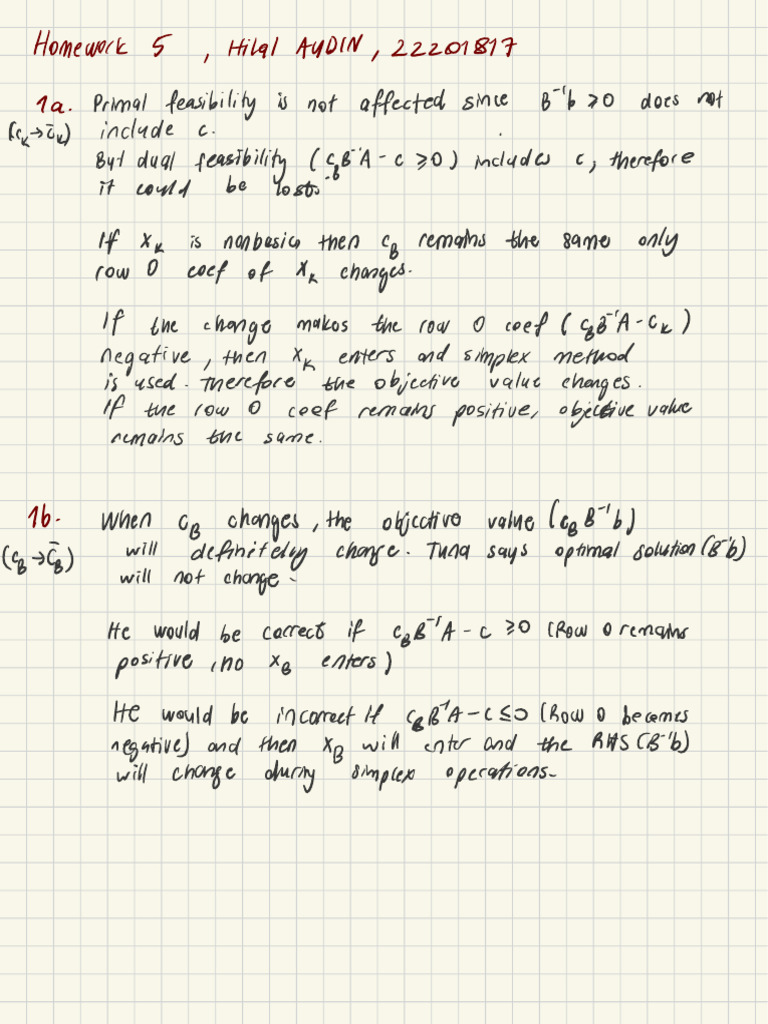 Homework 5 , Hilal AYDIN, 22201817
1a. Primal feasibility is not affected since B⁻¹b ≥ 0 does not
(c_K → c̄_K) include c.
But dual feasibility (c_B B⁻¹A - c ≥ 0) includes c, therefore
it could be lost.
If x_K is nonbasic then c_B remains the same only
row 0 coef of x_K changes.
If the change makes the row 0 coef (c_B B⁻¹A - c_K)
negative, then x_K enters and simplex method
is used. Therefore the objective value changes.
If the row 0 coef remains positive, objective value
remains the same.
1b. When c_B changes, the objective value (c_B B⁻¹b)
(c_B → c̄_B) will definitely change. Tuna says optimal solution (B⁻¹b)
will not change.
He would be correct if c_B B⁻¹A - c ≥ 0 (Row 0 remains
positive, no x_B enters)
He would be incorrect if c_B B⁻¹A - c ≤ 0 (Row 0 becomes
negative) and then x_B will enter and the RHS (B⁻¹b)
will change during simplex operations.